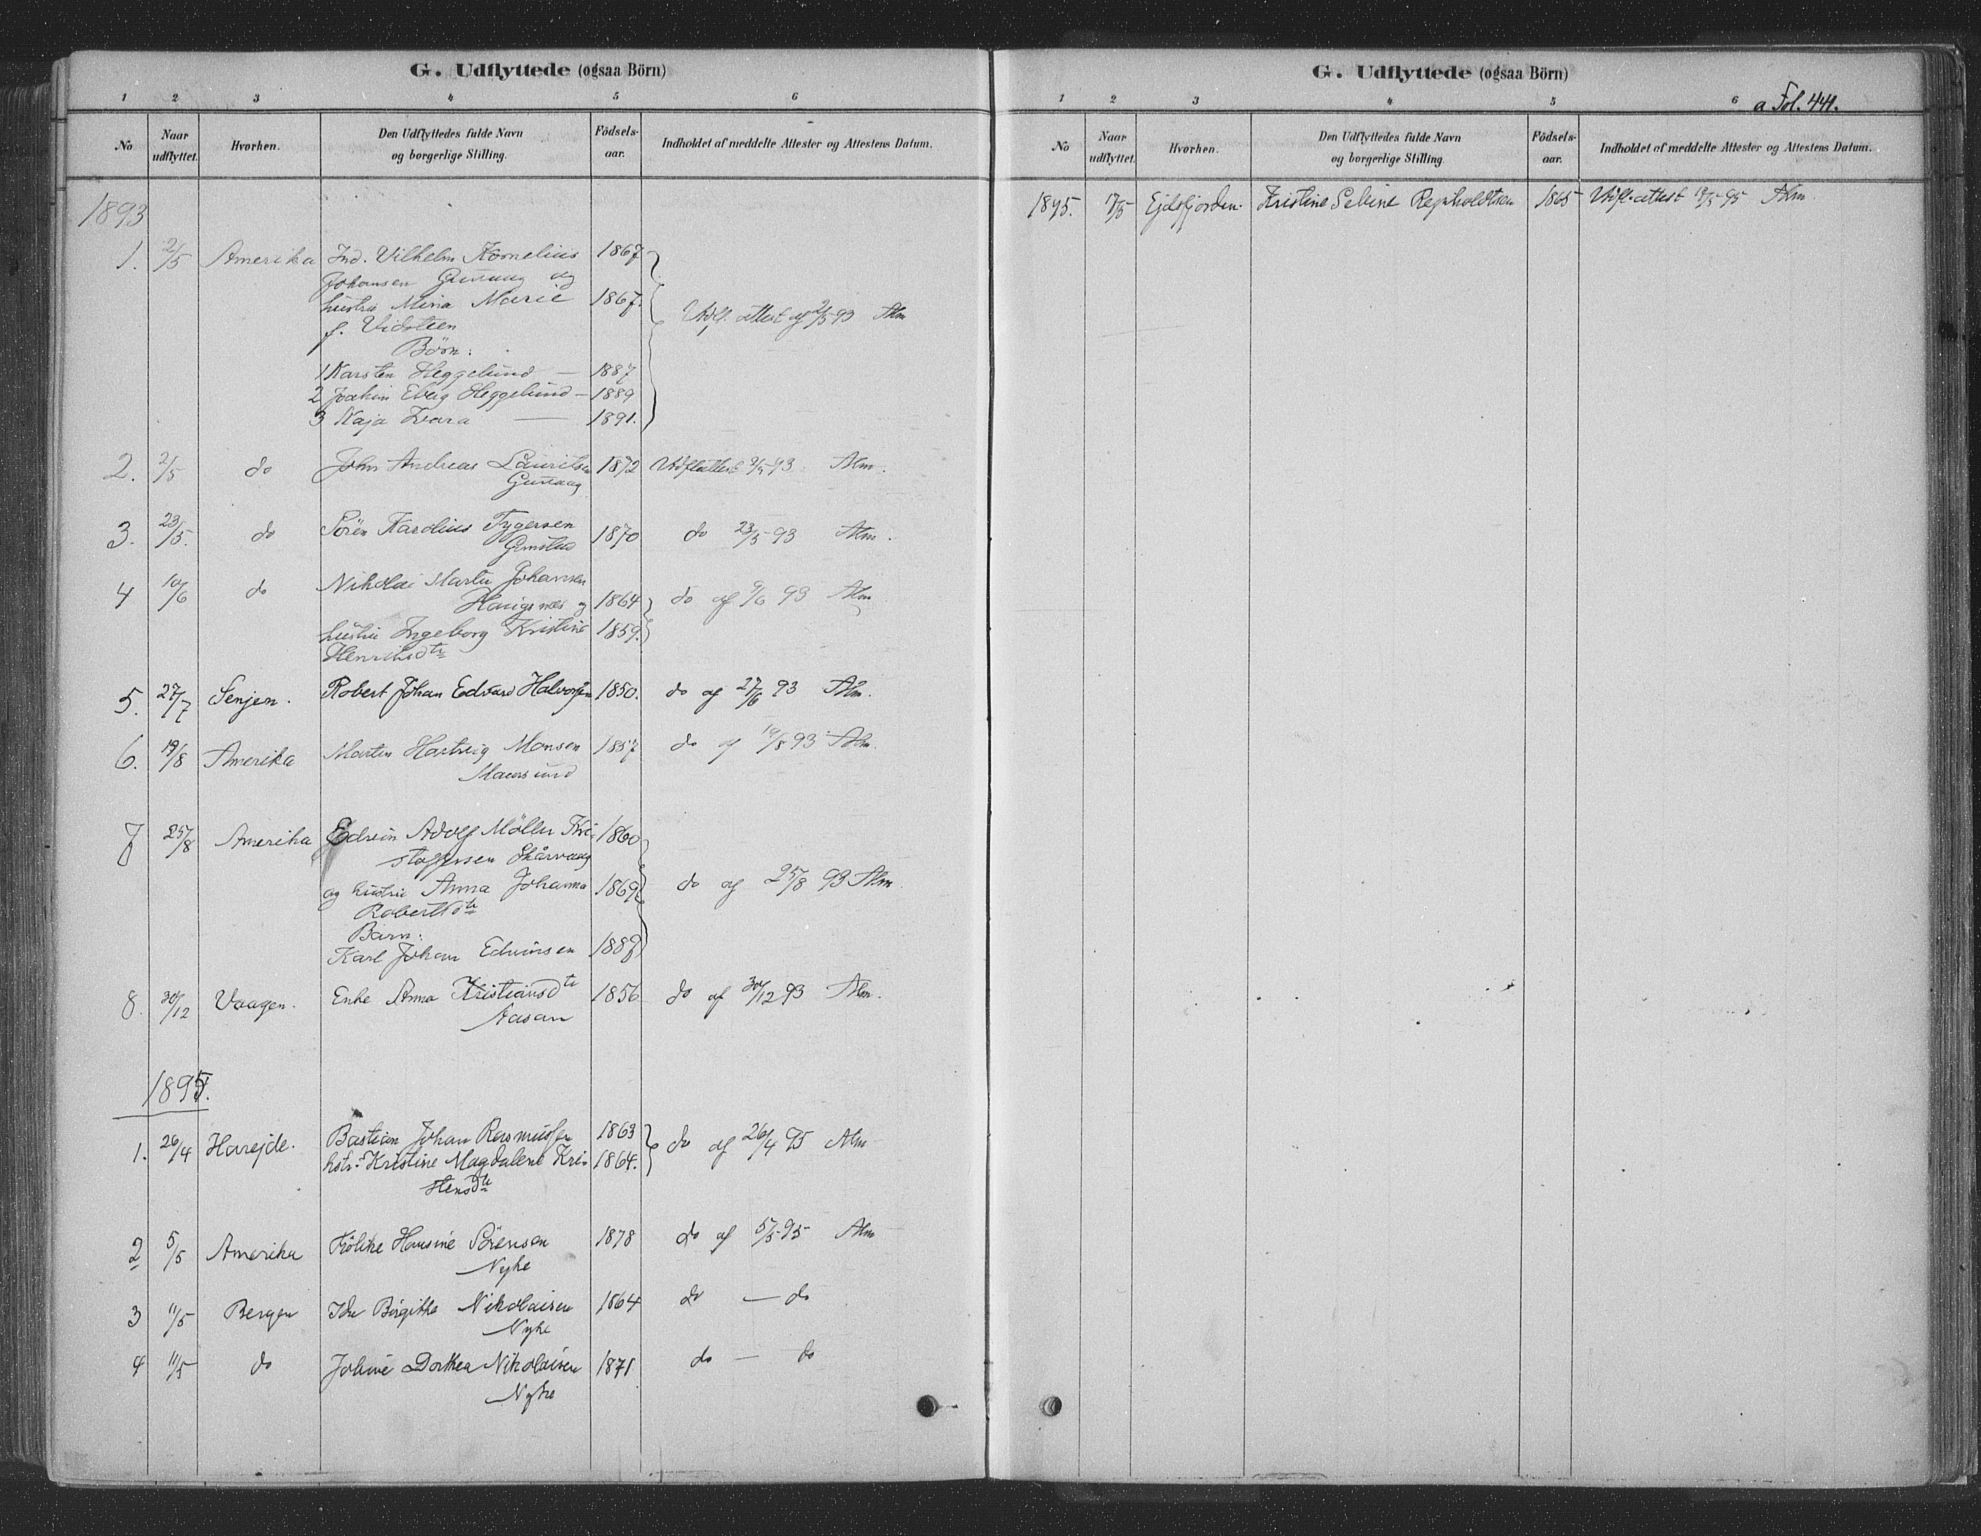 G. Udflyttede (ogsaa Börn)
1 2 3 4 5 6
No Naar udflyttet. Hvorhen. Den Udflyttedes fulde Navn og borgerlige Stilling. Födsels-aar. Indholdet af meddelte Attester og Attestens Datum.
1893
1. 2/5 Amerika Ind. Vilhelm Kornelius 1867
Johansen og
hustru Mina Marie 1867. Udfl. attest af 2/5 93 Alm
f. Vidsteen
Börn:
1 Karsten Heggelund — 1887
2 Joakim Ebeig Heggelund — 1889
3 Kaja — 1891.
2. 2/5 do John Andreas Lauritsen 1872 Udflattest 93 Alm.
3. 23/5. do Sören Karolius 1870 do 23/5 93 Alm.
4 10/6 do Nikolai Martin Johansen
Haugsnes og 1864 do af 9/6 93 Alm
hustru Ingeborg Kristine 1859.
Henriksdtr
5. 27/7 Senjen. Robert Johan Edvard Halvorsen 1850. do af 27/6 93 Alm.
6. 19/8 Amerika Martin Hartvig Monsen 1857 do af 19/8 93 Alm.
Maursund
7 25/8 Amerika Edvin Adolf Möller Kri- 1860
stoffersen Skårvaag
og hustru Anna Johanna 1869 do af 25/8 93 Alm.
Robertsdtr
Barn:
Karl Johan Edvinsen 1889
8. 30/12 Vaagen. Enke Anna Kristiansdtr 1856 do af 30/12 93 Alm.
Aasan
1895.
1. 26/4 Havejde. Bastian Johan Rasmussen 1863 do af 26/4 95 Alm
hstr. Kristine Magdalene Kri- 1864.
stensdtr
2 5/5 Amerika Hansine Sörensen 1878 do af 5/5 95 Alm
Nyke
3 11/5 Bergen Ida Birgithe Nikolaisen 1864 do — do
Nyke
4 11/5 do Joline Dorthea Nikolaisen 1871 do — do
Nyke
G. Udflyttede (ogsaa Börn)
a Fol. 44.
1 2 3 4 5 6
No Naar udflyttet. Hvorhen. Den Udflyttedes fulde Navn og borgerlige Stilling. Födsels-aar. Indholdet af meddelte Attester og Attestens Datum.
1895. 17/5 Ejdsfjorden. Kristine Seline Regnholdtsen 1865 Udfl. attest 95 Alm.